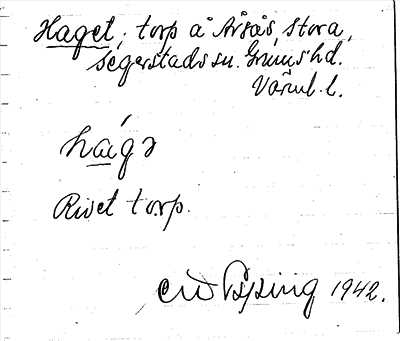 Haget, torp å Årsås, Stora,
Segerstads sn. Grums hd.
Värml. l.
hágə
Rivet torp.
1942.